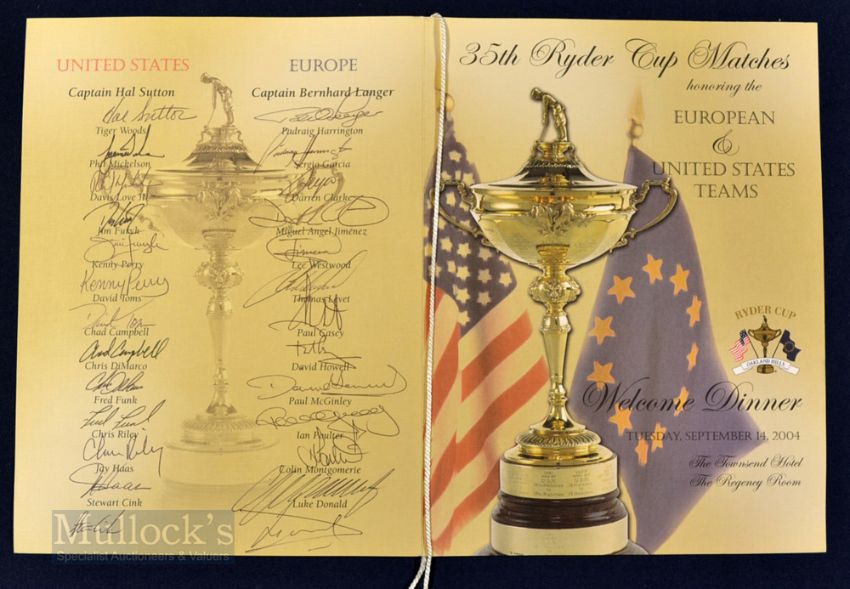 UNITED STATES
Captain Hal Sutton
Hal Sutton
Tiger Woods
Phil Mickelson
Davis Love III
Jim Furyk
Kenny Perry
Kenny Perry
David Toms
Chad Campbell
Chad Campbell
Chris DiMarco
Fred Funk
Fred Funk
Chris Riley
Chris Riley
Jay Haas
Stewart Cink
EUROPE
Captain Bernhard Langer
Padraig Harrington
Sergio Garcia
Darren Clarke
Miguel Angel Jiménez
Lee Westwood
Thomas Levet
Paul Casey
David Howell
Paul McGinley
Ian Poulter
Colin Montgomerie
Luke Donald
Mullock's
Specialist Auctioneers & Valuers
35th Ryder Cup Matches
honoring the
EUROPEAN
&
UNITED STATES
TEAMS
RYDER CUP
OAKLAND HILLS
Welcome Dinner
TUESDAY, SEPTEMBER 14, 2004
The Townsend Hotel
The Regency Room